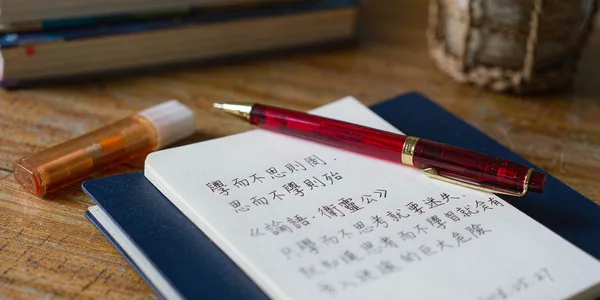 學而不思則罔.
思而不學則殆
《論語·衛靈公》
只學而不思考就要迷失.
思考而不學習就會有
的巨大危險
27